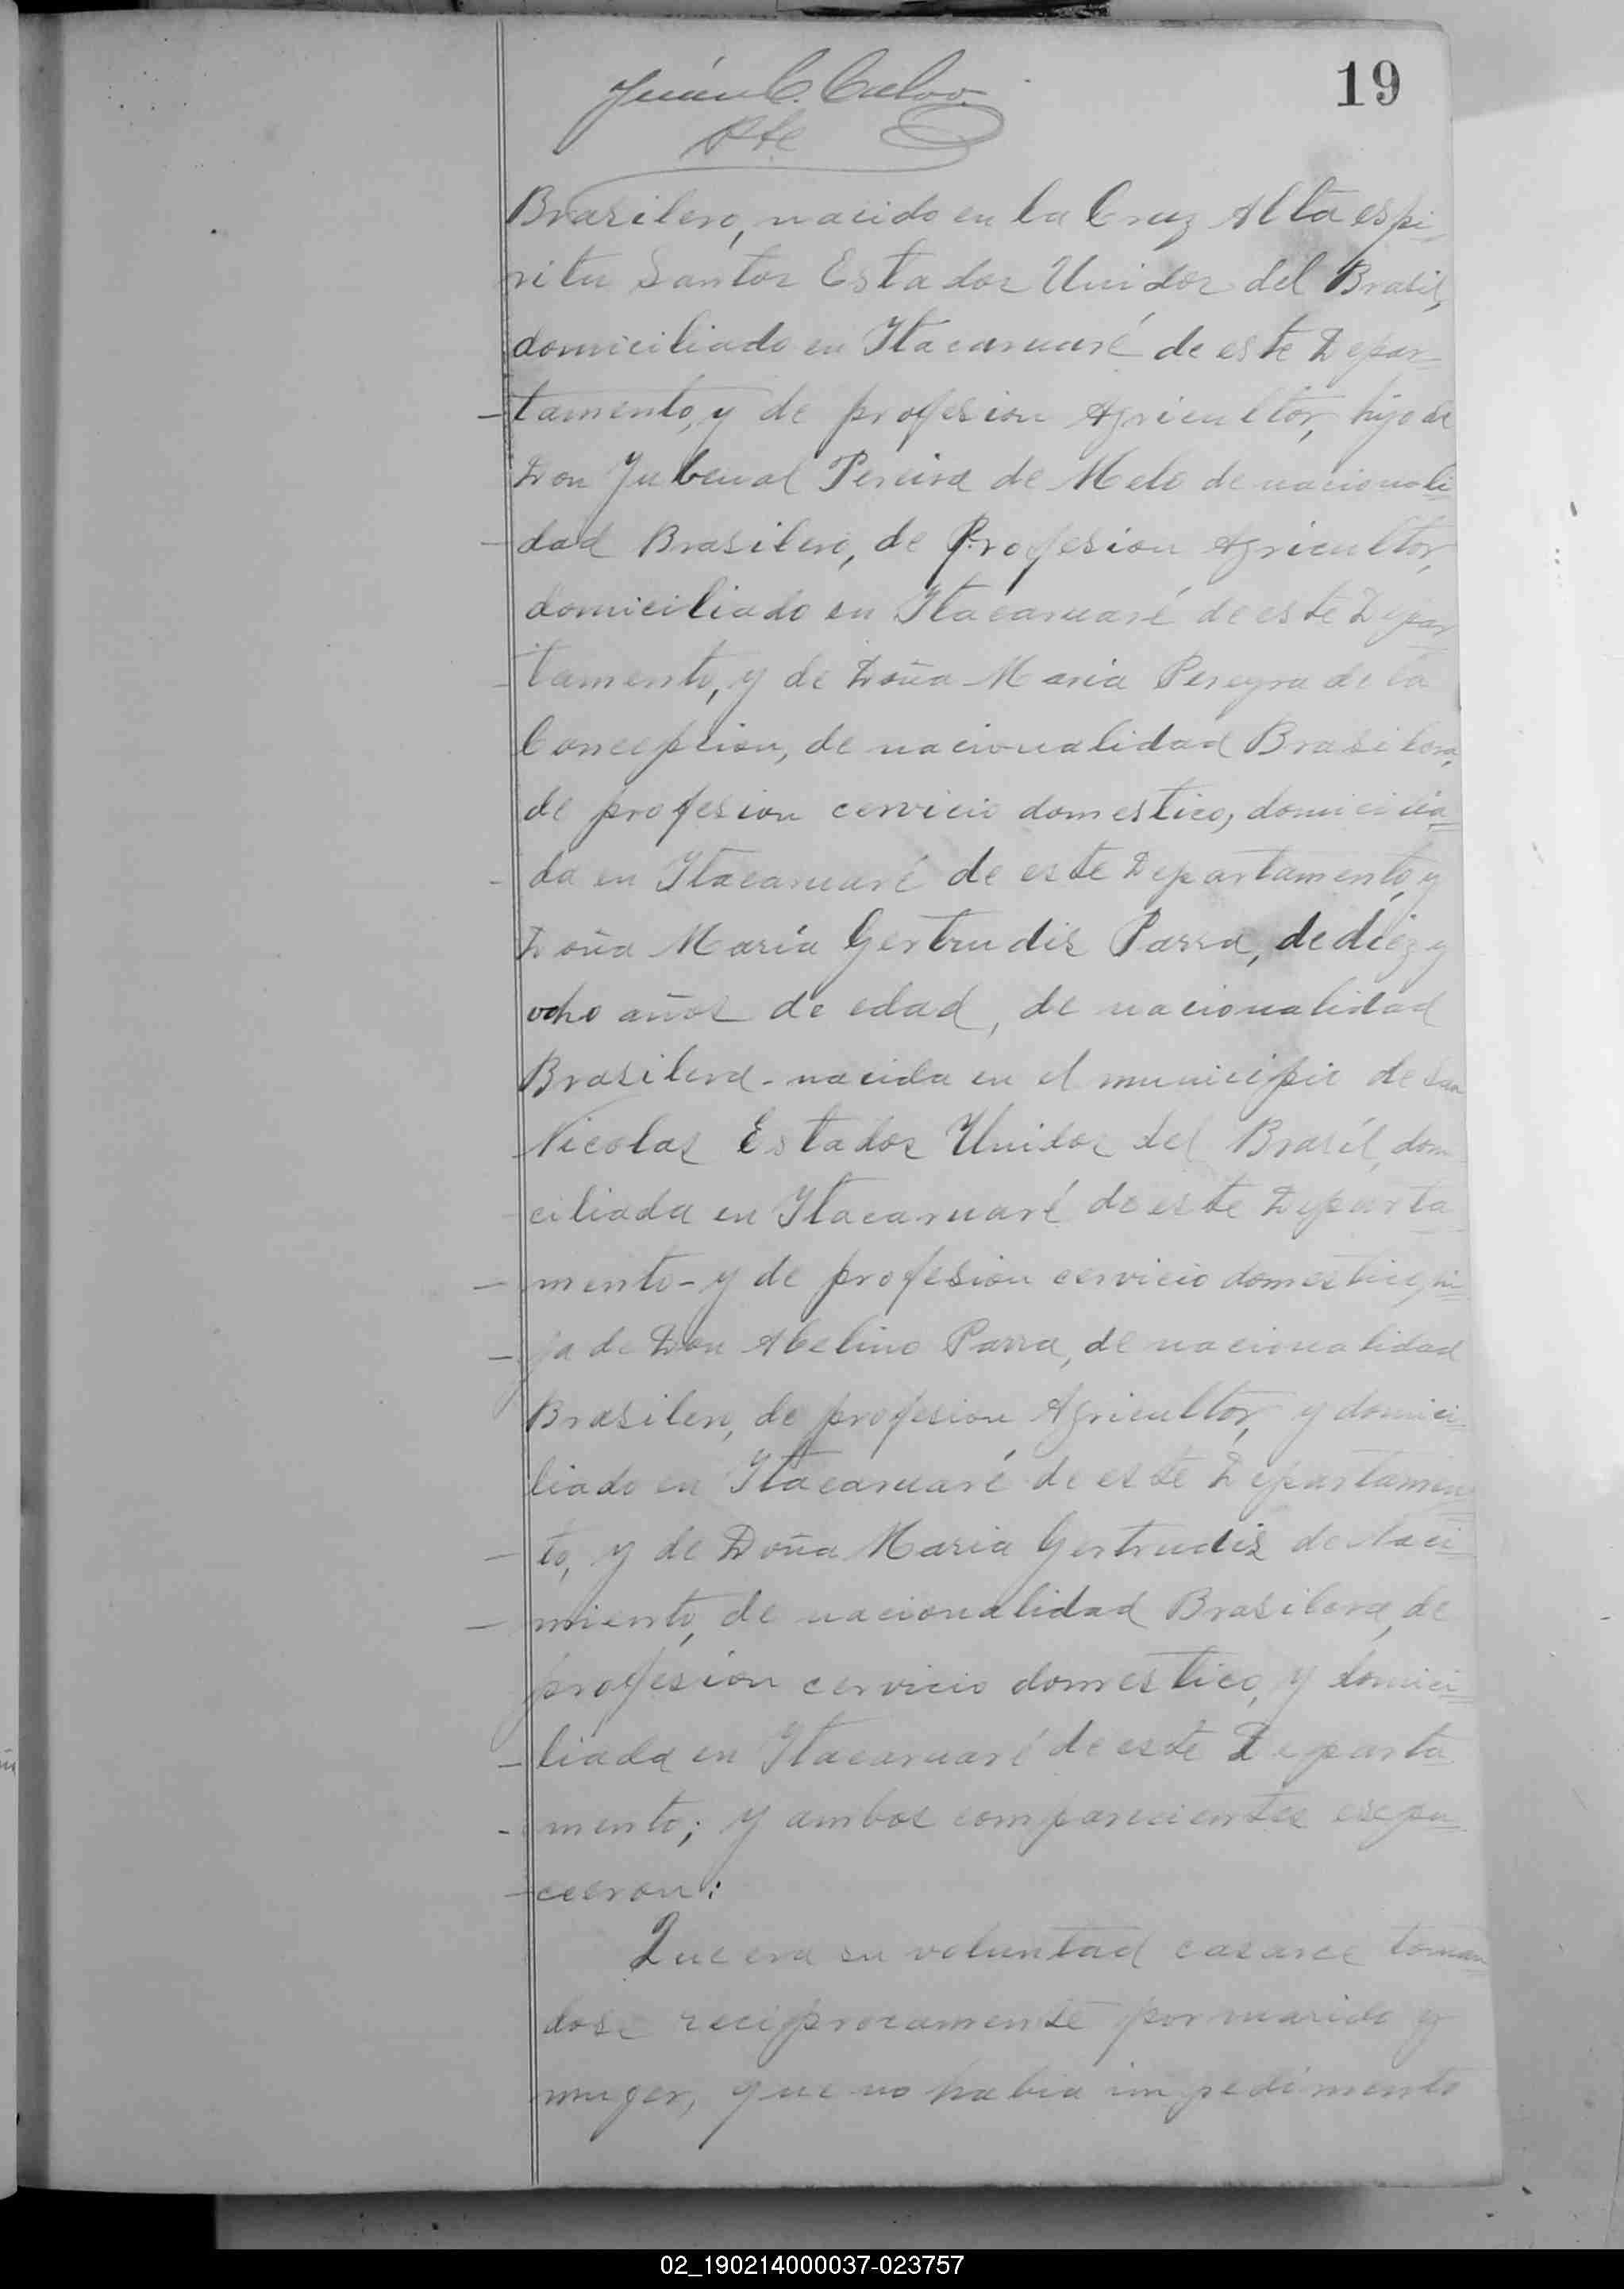 19
Juan C. Calvo.
Pte
Brasilero, nacido en la Cruz Alta espi-
ritu Santos Estados Unidos del Brasil,
domiciliado en Itacaruaré de este Depar-
tamento, y de profesion Agricultor, hijo de
Don Jubenal Pereira de Melo de nacionali
dad Brasilero, de Profesion Agricultor,
domiciliado en Itacaruaré de este Depar
tamento, y de Doña Maria Pereyra de la
Concepcion, de nacionalidad Brasilera,
de profesion cervicio domestico, domicilia
da en Itacaruaré de este Departamento, y
Doña María Gertrudis Parra, de diez y
ocho años de edad, de nacionalidad
Brasilera - nacida en el municipio de San
Nicolas Estados Unidos del Brasíl, domi
ciliada en Itacaruaré de este Departa
mento - y de profesion cervicio domestico, hi
ja de Don Abelino Parra, de nacionalidad
Brasilero, de profesion Agricultor, y domici
liado en Itacaruaré de este Departamen
to, y de Doña Maria Gertrudis de Naci
miento, de nacionalidad Brasilera, de
profesion cervicio domestico, y domici
liada en Itacaruaré de este Departa
mento; y ambos comparecientes
Que era su voluntad casarce toman
dose reciprocamente por marido y
muger, que no habia impedimento
02_190214000037-023757